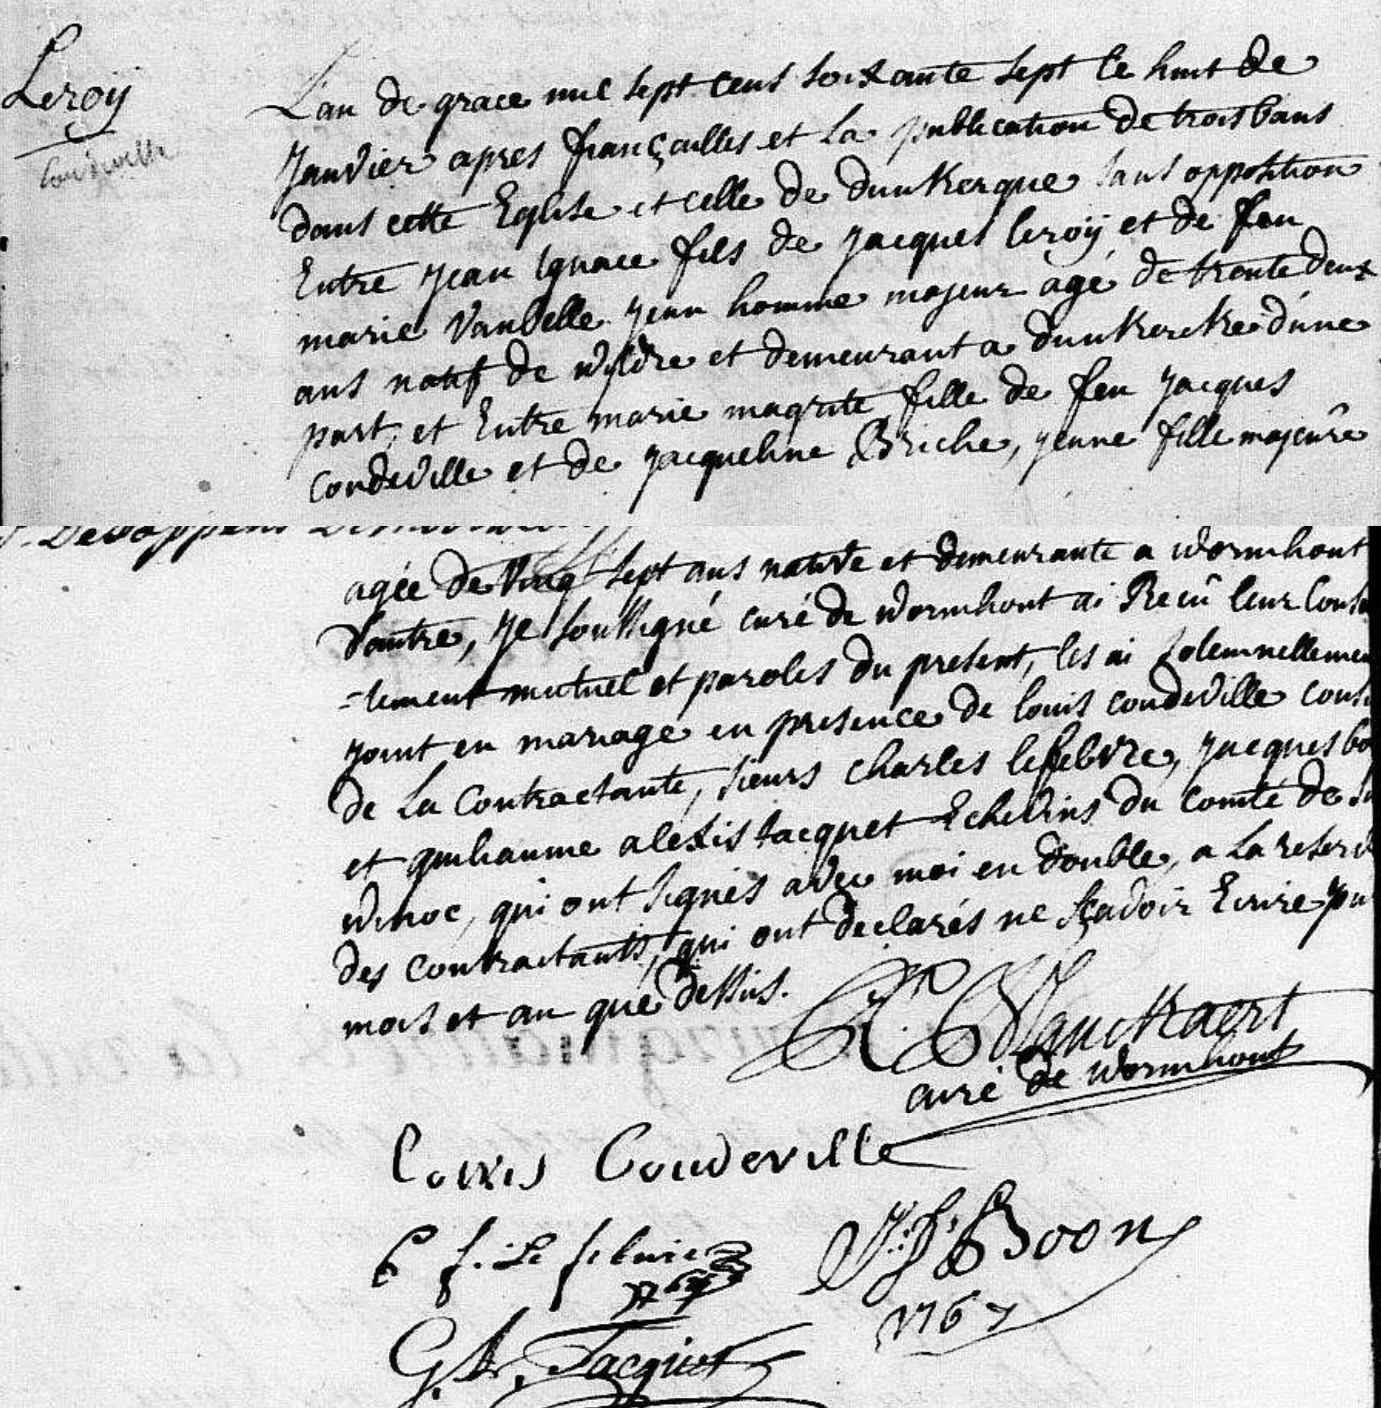 Leroÿ
Condeville
L'an de grace mil sept cens soixante sept le huit de
Janvier apres françailles et la publication de trois bans
dans cette Eglise et celle de dunkerque sans opposition
Entre Jean Ignace fils de Jacques leroÿ et de feu
marie Vanbelle jeun homme majeur agé de trente deux
ans natif de wÿldre et demeurant a dunkercke d'une
part, et Entre marie magrite fille de feu Jacques
condeville et de jacqueline Briche, jeune fille majeure
agée de vingt sept ans native et demeurante a wormhout
d'autre, Je soussigné curé de wormhout ai Recû leur Cons
-tement mutuel et paroles du present, les ai solemnellemen
joint en mariage en presence de louis condeville cous
de la Contractante, sieurs charles lefebvre, jacques bo
et guilhaume alexis Jacquet Echevins du comté de
winoc, qui ont signés avec moi en double, a la reserv
des contractants, qui ont declarés ne sçavoir Ecrire
mois et an que dessus.
Vanckaert
curé de wormhout
Louis Coudeville
C f. Le febvre
1767
J: f: Boon
1767
G. A. Jacquet